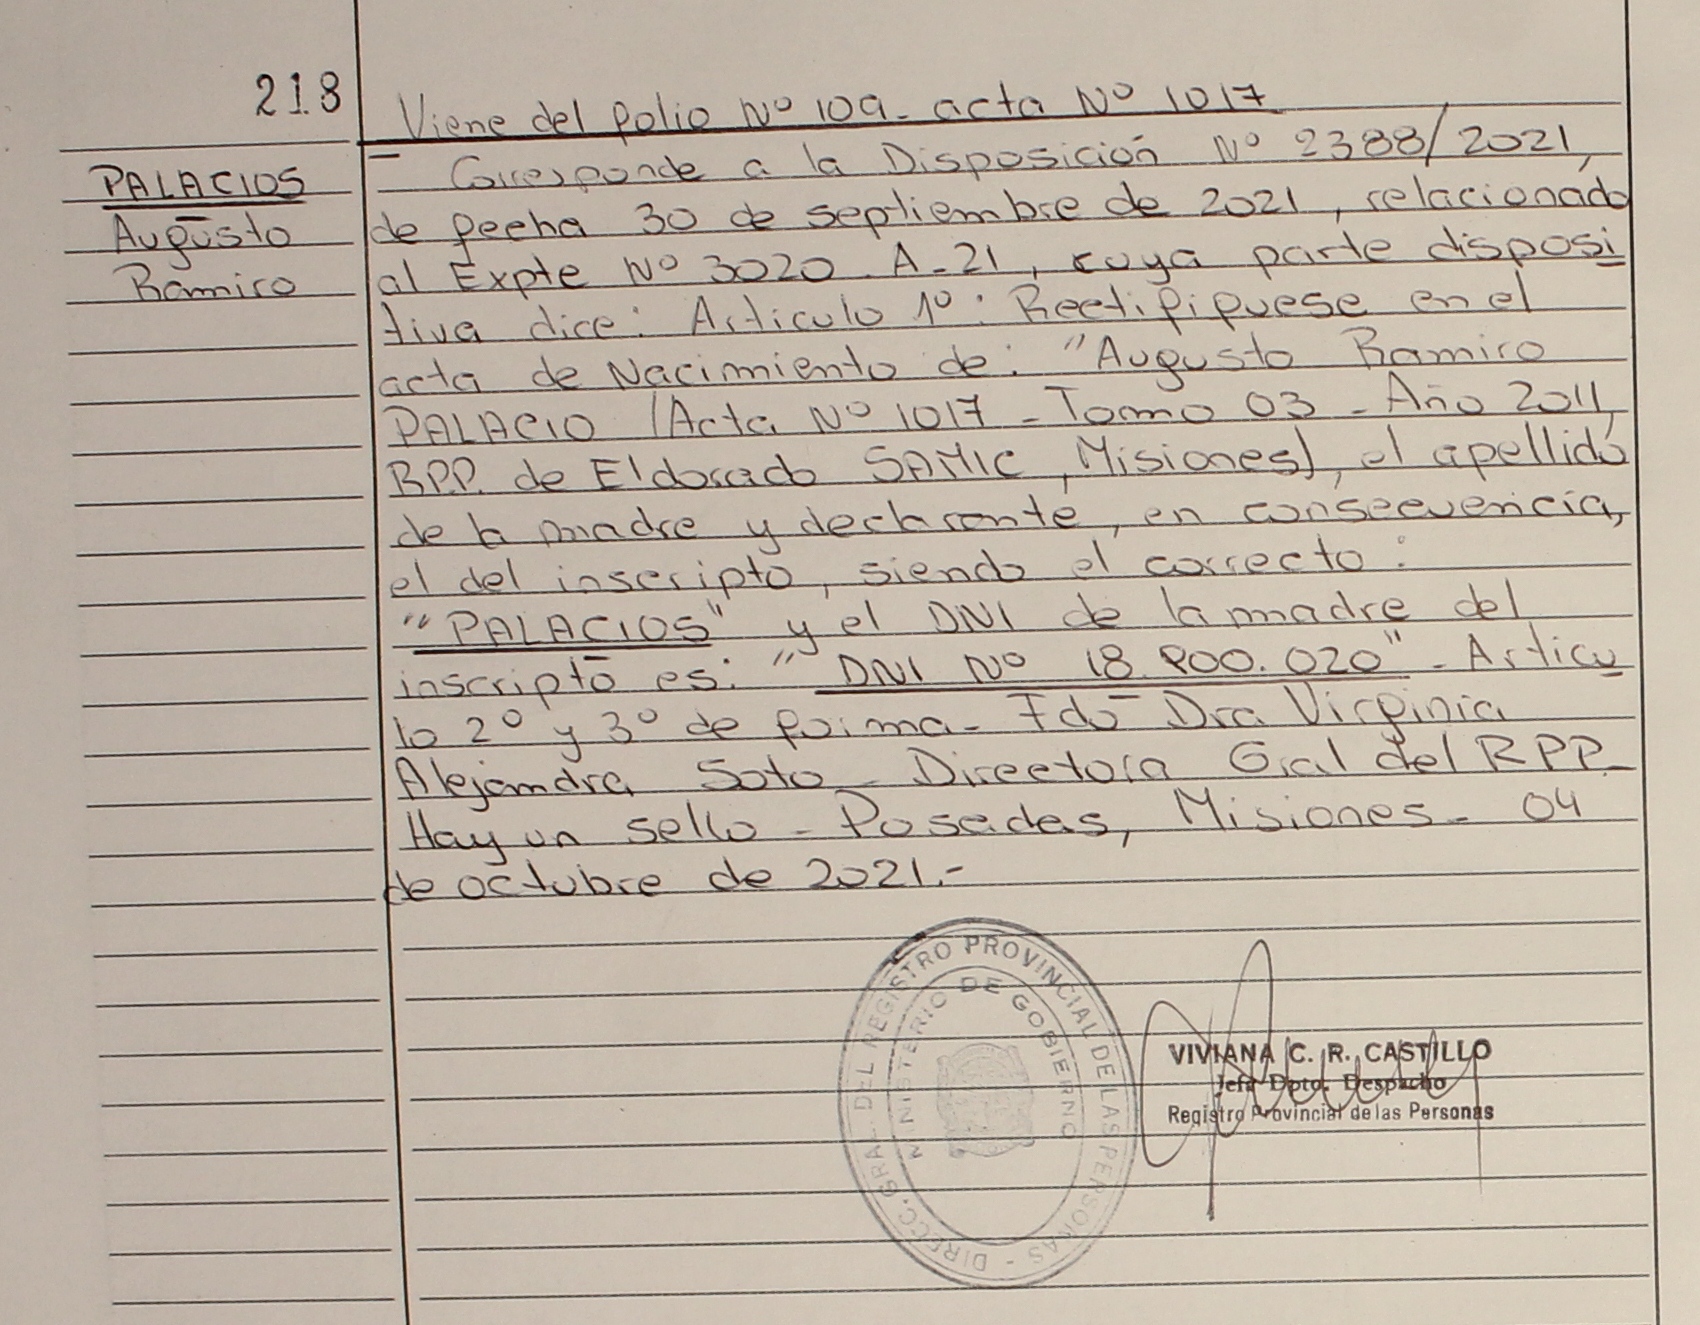 218
Viene del folio Nº 109- acta Nº 1017
PALACIOS
Augusto
Ramiro
- Corresponde a la Disposición Nº 2388/2021,
de fecha 30 de septiembre de 2021, relacionado
al Expte Nº 3020-A-21, cuya parte disposi
tiva dice: Articulo 1º: Rectifiquese en el
acta de Nacimiento de: "Augusto Ramiro
PALACIO (Acta Nº 1017 - Tomo 03 - Año 2011,
RPP. de Eldorado SAMIC, Misiones), el apellido
de la madre y declarante, en consecuencia,
el del inscripto, siendo el correcto:
"PALACIOS" y el DNI de la madre del
inscripto es: "DNI Nº 18.900.020" - Articu
lo 2º y 3º de forma- Fdo Dra Virginia
Alejandra Soto - Directora Gral del RPP-
Hay un sello - Posadas, Misiones- 04
de octubre de 2021.-
DIRECC. GRAL. DEL REGISTRO PROVINCIAL DE LAS PERSONAS -
MINISTERIO DE GOBIERNO
VIVIANA C. R. CASTILLO
Jefa Dpto. Despacho
Registro Provincial de las Personas